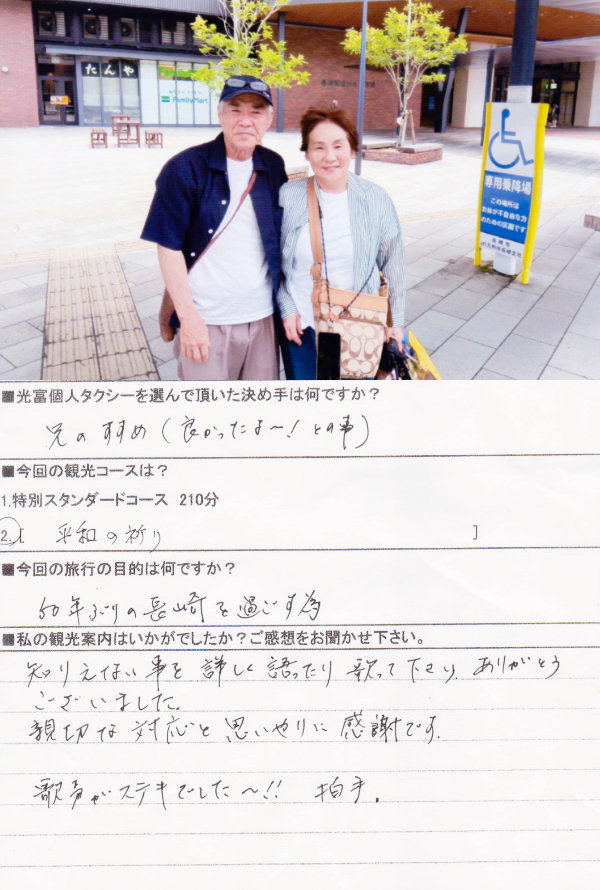 たんや
FamilyMart
専用乗降場
この場所は
お体が不自由な方
のための区画です
■光富個人タクシーを選んで頂いた決め手は何ですか？
兄のすすめ（良かったよ～！との事）
■今回の観光コースは？
1.特別スタンダードコース 210分
2.[ 平和の祈り ]
■今回の旅行の目的は何ですか？
50年ぶりの長崎を過ごす為
■私の観光案内はいかがでしたか？ご感想をお聞かせ下さい。
知りえない事を詳しく語ったり歌って下さり、ありがとう
ございました。
親切な対応と思いやりに感謝です。
歌声がステキでした～!! 拍手。